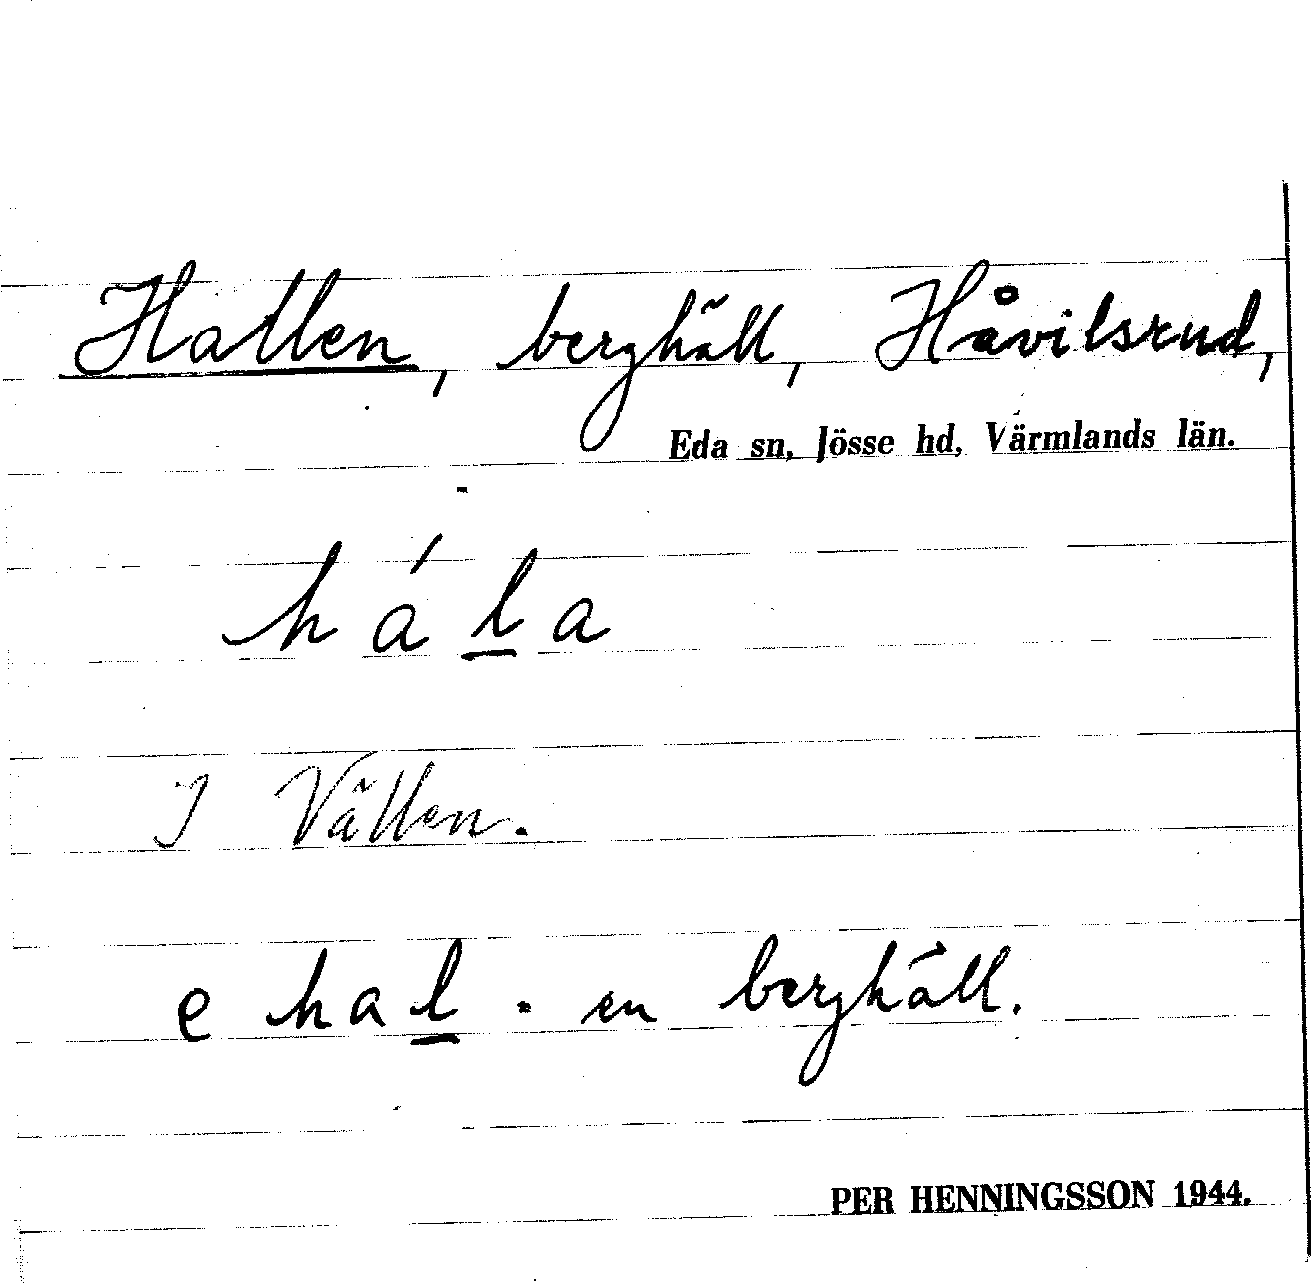 Hallen, berghäll, Håvilsrud,
Eda sn, Jösse hd, Värmlands län.
há l̲a
I Vällen.
e hal̲. en berghäll.
PER HENNINGSSON 1944.